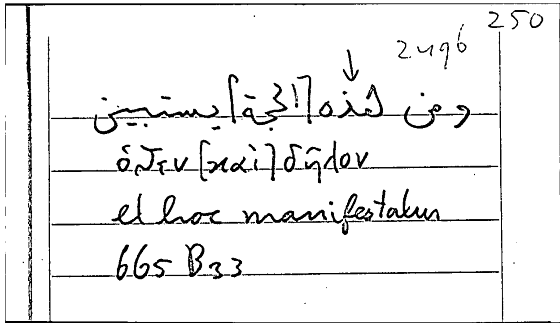 250
2496
ومن هذه [الحجة] يستبين
ὅθεν [καὶ] δῆλον
et hoc manifestatur
665 B33